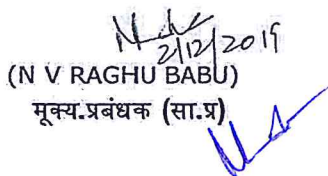 2/12/2019
(N V RAGHU BABU)
मूक्य.प्रबंधक (सा.प्र)